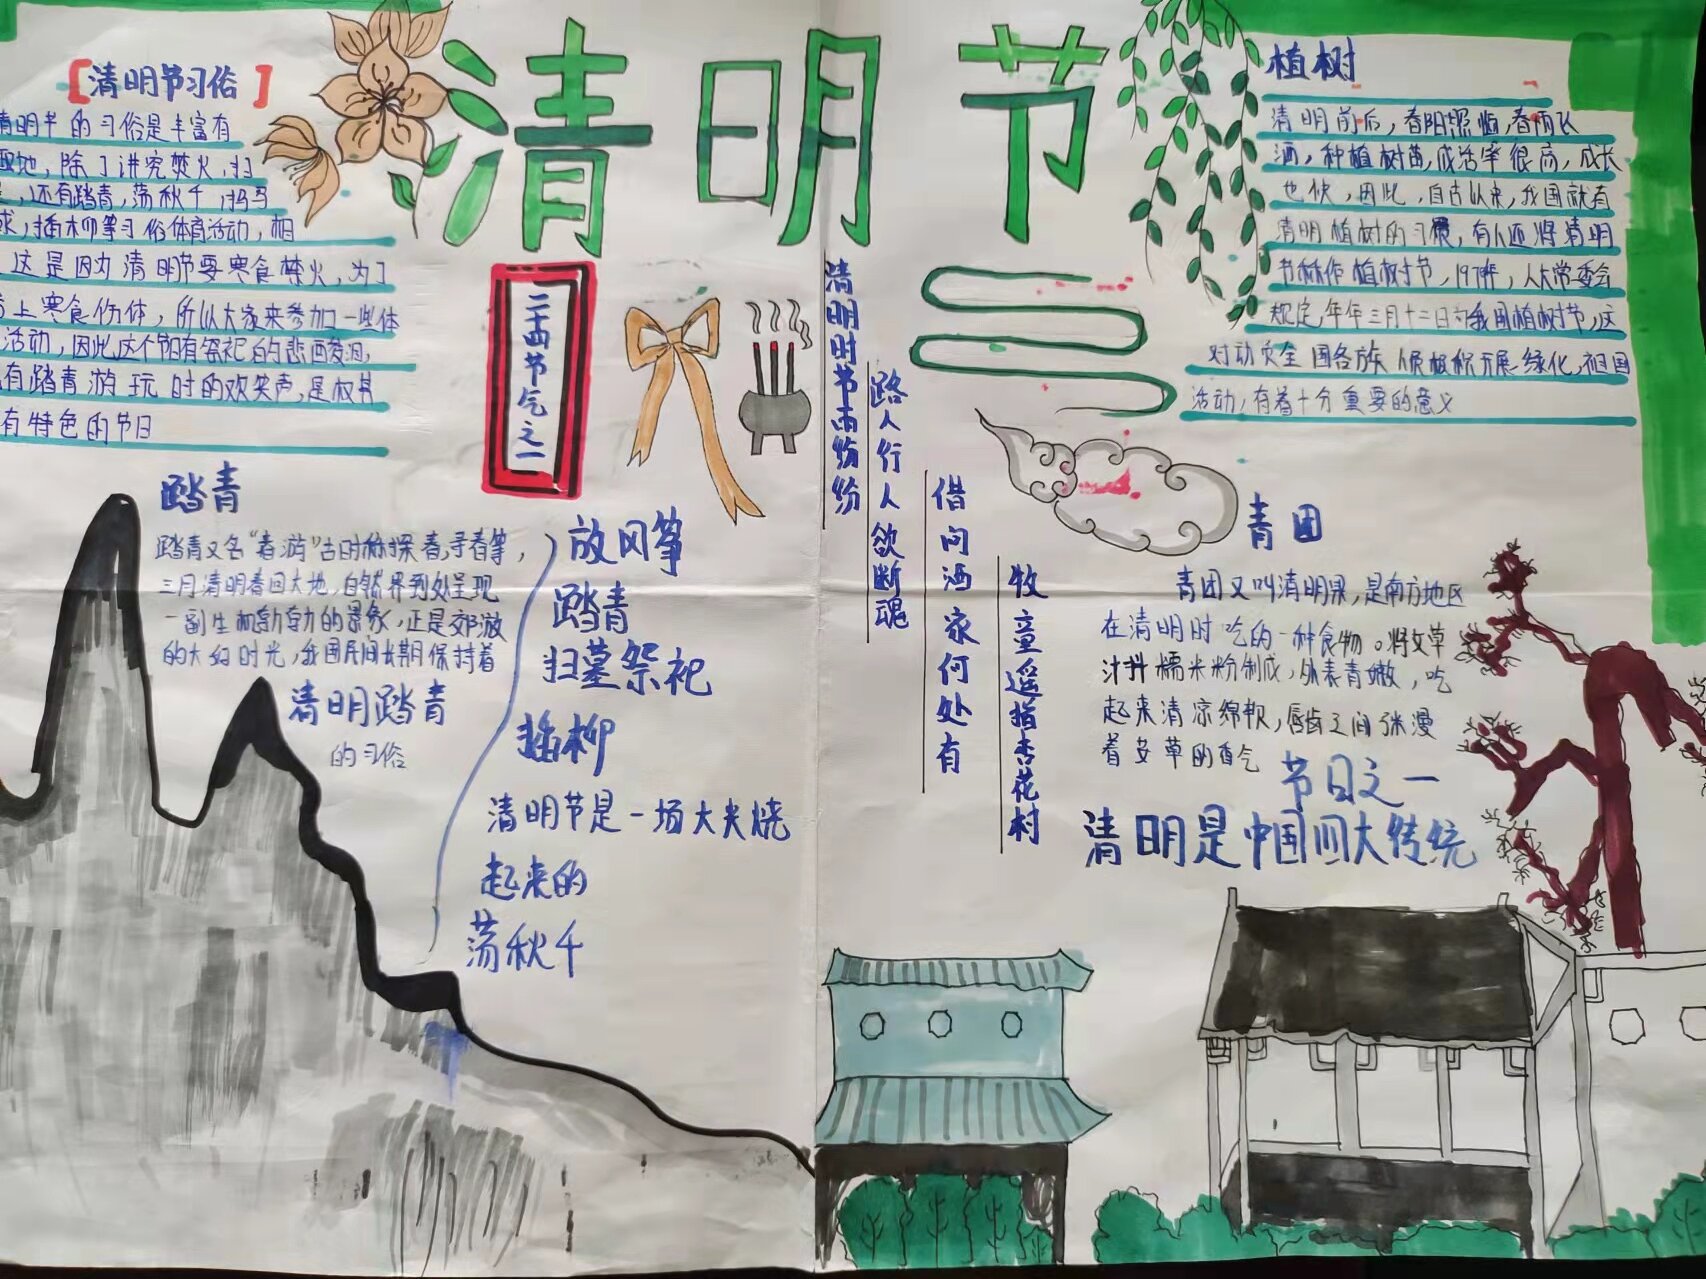 清明节
[清明节习俗]
清明节的习俗是丰富有
趣地,除了讲究禁火,扫
墓,还有踏青,荡秋千,打马
球,插柳等习俗体育活动,相
这是因为清明节要寒食禁火,为了
上寒食伤体,所以大家来参加一些体
活动,因此这个节日有祭祀的悲酸泪,
有踏青游玩时的欢笑声,是极其
有特色的节日
二十四节气之一
踏青
踏青又名"春游"古时称探春,寻春等,
三月清明春回大地,自然界到处呈现
一副生机勃勃的景象,正是郊游
的大好时光,我国民间长期保持着
清明踏青
的习俗
放风筝
踏青
扫墓祭祀
插柳
清明节是一场大火烧
起来的
荡秋千
清明时节雨纷纷
路人行人欲断魂
借问酒家何处有
牧童遥指杏花村
植树
清明前后,春阳照临,春雨飞
洒,种植树苗,成活率很高,成长
也快,因此,自古以来,我国就有
清明植树的习惯,有人还将清明
节称作植树节,1979年,人大常委会
规定年年三月十二日为我国植树节,这
对动员全国各族人民积极开展绿化祖国
活动,有着十分重要的意义
青团
青团又叫清明果,是南方地区
在清明时吃的一种食物。将艾草
汁拌糯米粉制成,外表青嫩,吃
起来清凉绵软,唇齿之间弥漫
着艾草的香气
节日之一
清明是中国四大传统